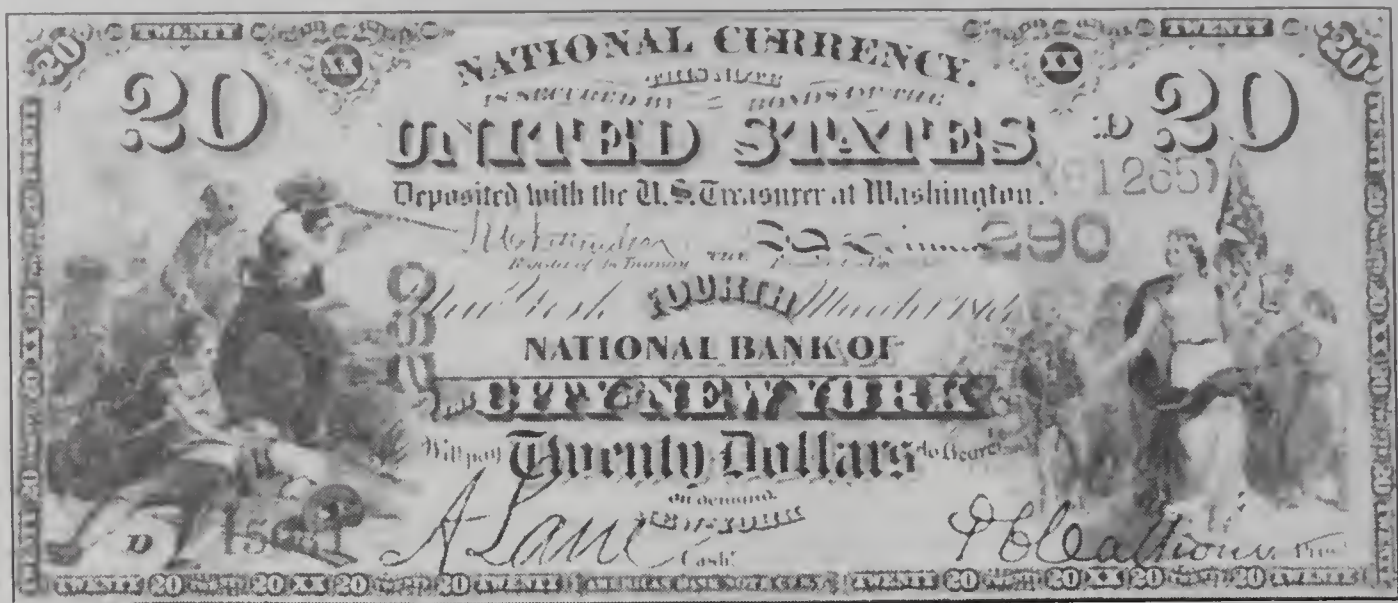 20 TWENTY XX NATIONAL CURRENCY. XX TWENTY 20
20 THIS NOTE 20
IS SECURED BY BONDS OF THE
UNITED STATES D
Deposited with the U.S. Treasurer at Washington. 1265
Register of the Treasury 290
New York FOURTH March
NATIONAL BANK OF
THE CITY NEW YORK
Will pay Twenty Dollars to Bearer
on demand.
NEW-YORK
D A Lane Cash. Calhoun Prest
TWENTY 20 20 XX 20 20 TWENTY AMERICAN BANK NOTE CO. N.Y. TWENTY 20 20 XX 20 20 TWENTY